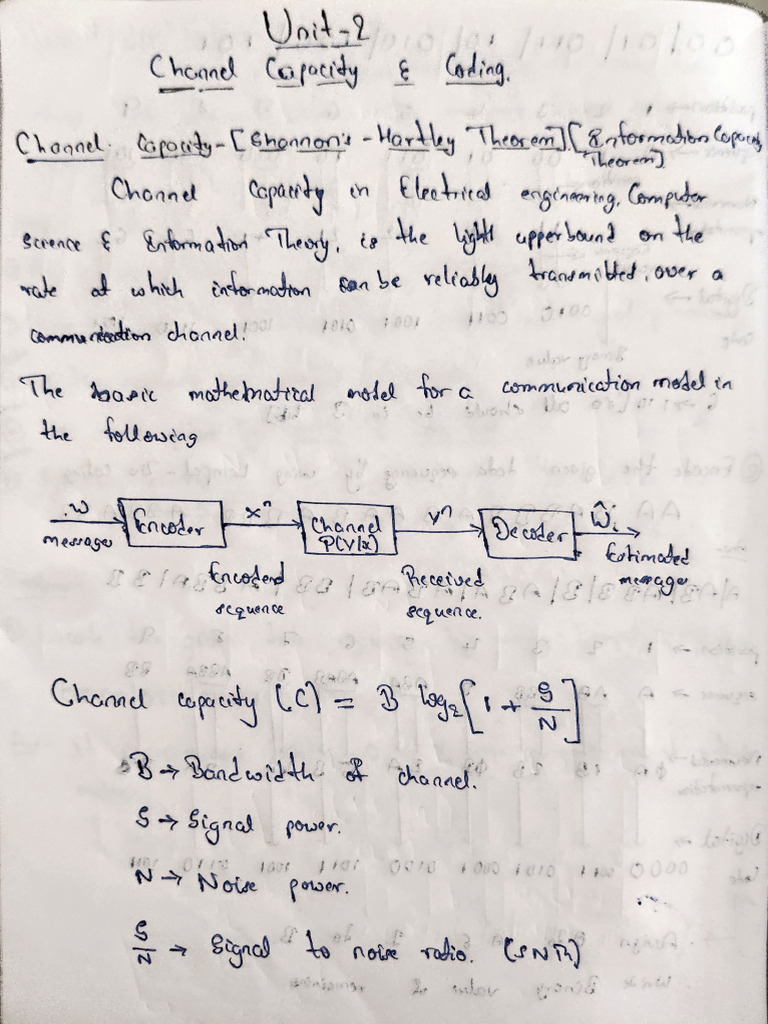 Unit-2
Channel Capacity & Coding.
Channel Capacity-[Shannon's-Hartley Theorem][Information Capacity
Theorem]
Channel Capacity in Electrical engineering, Computer
science & Information Theory, is the light upperbound on the
rate at which information can be reliably transmitted, over a
communication channel.
The basic mathematical model for a communication model in
the following
w Encoder xⁿ Channel yⁿ Decoder Ŵ
message P(Y/x) Estimated
Encoded Received message
sequence sequence.
Channel capacity (C) = B log₂[1 + S/N]
B → Bandwidth of channel.
S → Signal power.
N → Noise power.
S/N → Signal to noise ratio. (SNR)